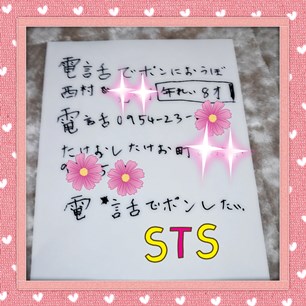 電話でポンにおうぼ
西村
年れい8才
電話0954-23-
たけおしたけお町
電話でポンしたい
STS